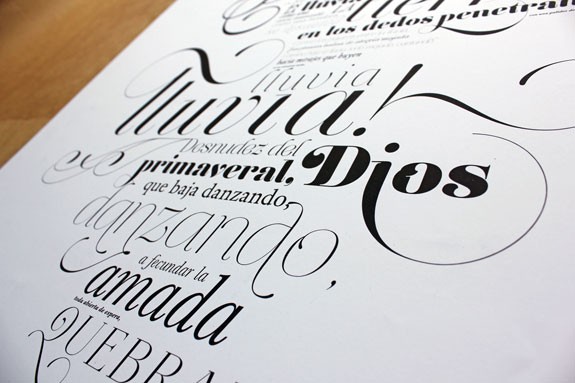 lluvia
en los dedos penetran
lluvia
lluvia!
Desnudez del
primaveral, Dios
que baja danzando,
danzando,
a fecundar la
amada
toda abierta de espera,
QUEBRA